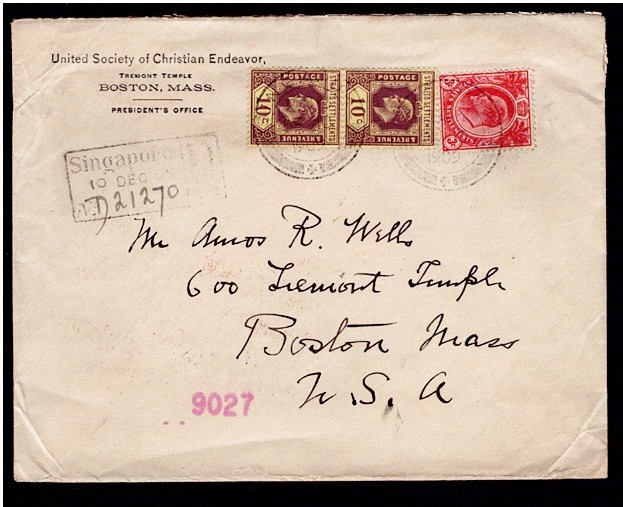 United Society of Christian Endeavor,
TREMONT TEMPLE
BOSTON, MASS.
PRESIDENT'S OFFICE
POSTAGE
& REVENUE
10 C
STRAITS SETTLEMENTS
POSTAGE
& REVENUE
10 C
STRAITS SETTLEMENTS
1909
Singapore
10 DEC
D 21270
Mr Amos R. Wells
600 Tremont Temple
Boston Mass
U. S. A
9027